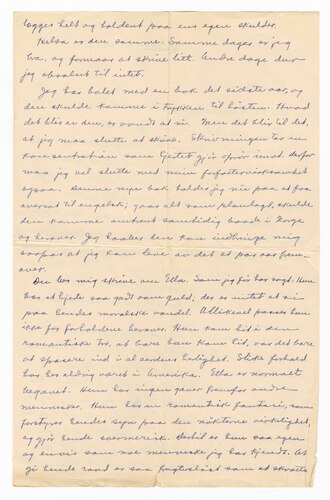 legges helt og holdent paa ens egen skulder.
Helsa er den samme. Somme dager er jeg
bra, og formaar at skrive litt. Andre dage duer
jeg absolut til intet.
Jeg har balet med en bok det sidste aar, og
den skulde kunne i trykken til høsten. Hvad
det blir av den, er vondt at si. Men det blir til det,
at jeg maa slutte at skrive. Skrivningen tar en
koncentration som Gjør mot. Derfor
maa jeg vel slutte med min forfattervirksomhet
ogsaa. Denne nye bok holder jeg nu paa at faa
oversat til engelsk; gaar alt som planlagt, skulde
den komme omtrent samtidig baade i Norge
og herover. Jeg haaber den kan indbringe mig
saapas at jeg kan leve av det et par aar frem-
over.
Du ber mig skrive om Ella. Som jeg før har sagt: Hun
har et hjerte saa godt som guld, der er intet at si
paa hendes moralske vandel. Allikevel passer hun
ikke for forholdene herover. Hun kom hit i den
romantiske tro, at bare hun kom hit, var det bare
at spasere ind i al verdens herlighet. Slike forhold
har jo aldrig været i Amerika. Ella er normalt
begavet. Hun har ingen gaver fremfor andre
mennesker. Hun har en romantisk fantasi, som
forstyrrer hendes syn paa den nøkterne virkelighet,
og gjør hende sværmerisk. Dertil er hun saa egen
og envis som noe menneske jeg har kjendt. At
gi hende raad er saa frugtesløst som at skvætte